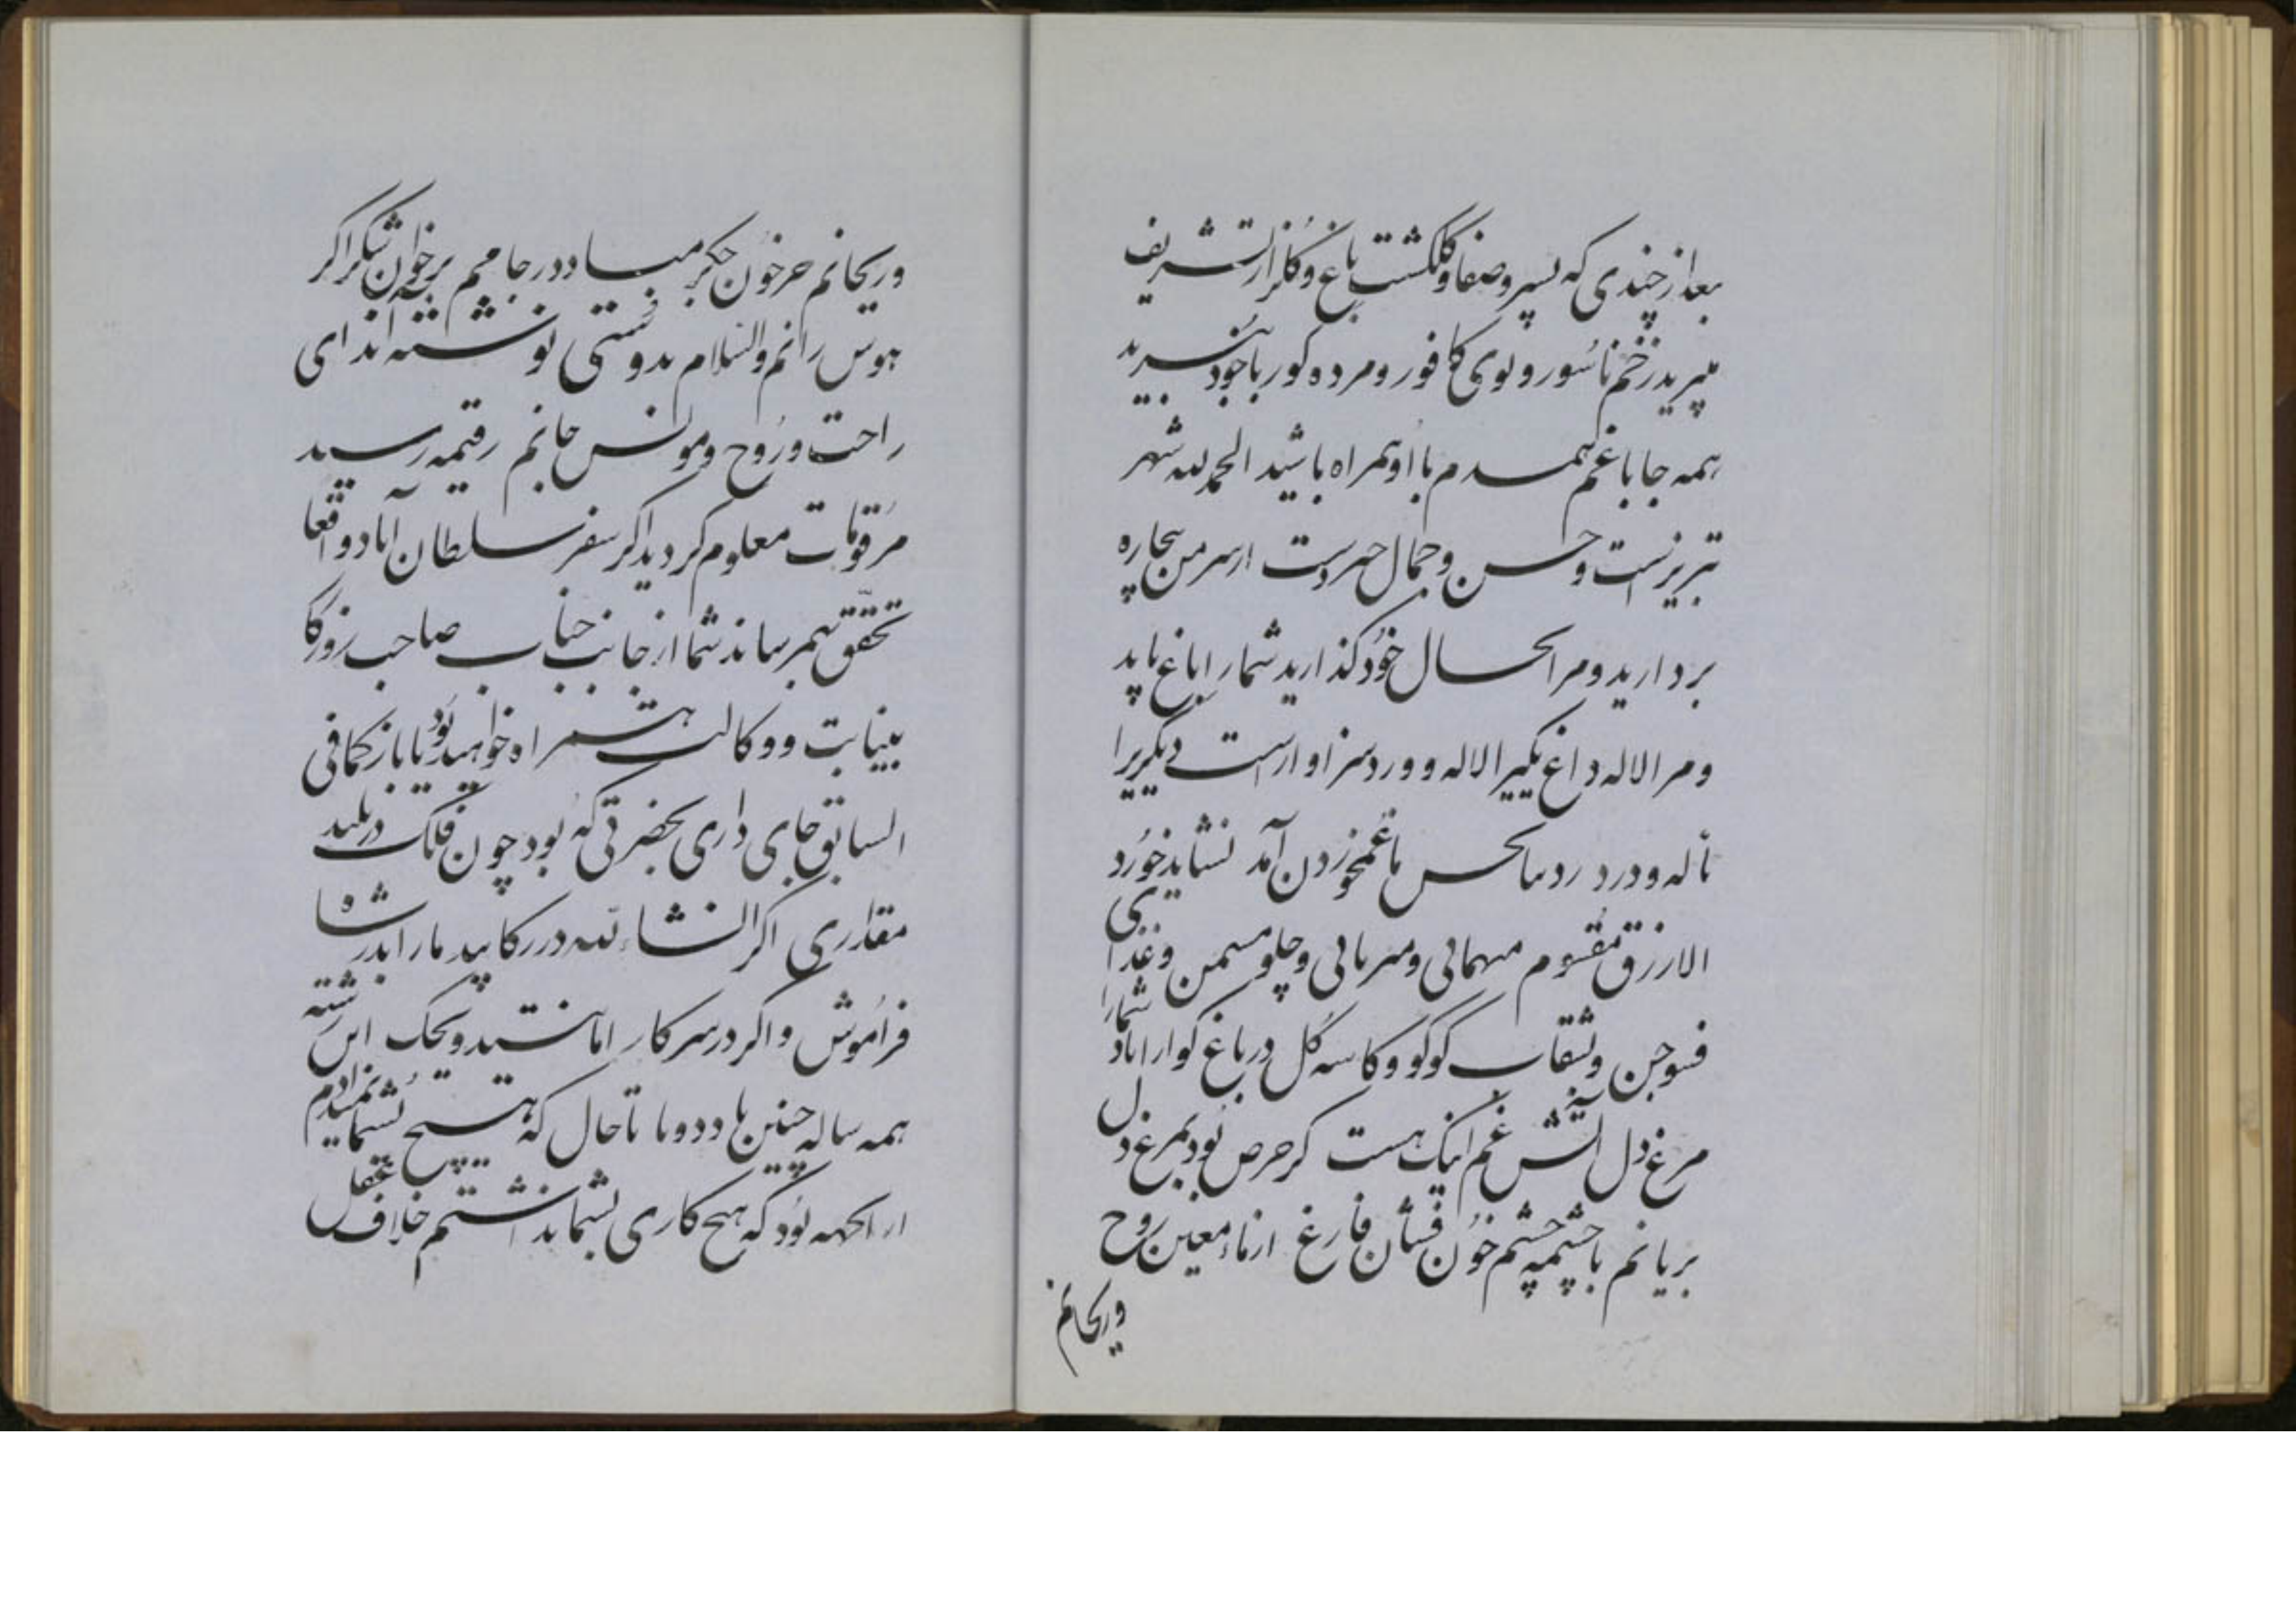 بعد از چندی که بسیر و صفا و گلگشت باغ و گلزار تشریف
میبرید زخم ناسور و بوی کافور و مرده گور با خود نبرید
همه جا با غم همدم با او همراه باشید الحمد لله شهر
تبریز است و حسن و جمال از سر من بیچاره
بردارید و مرا بحال خود گذارید شما را باغ باید
و مرا لاله داغ یکی را لاله و ورد سزاوار است دیگری را
ناله و درد غم خوردن آمد نشاید خورد
الا رزق مقسوم مهمانی و مهربانی و چلو مسمن و غذای
فسوجن و بشقاب کوکو و کاسه گل در باغ گوارا باد شما را
مرغ دل آتش غم اینک هست گر حرص بود بمرغ
بریانم با چشمه چشم خون فشان فارغ از ماء معین روح
و ریحانم
و ریحانم جز خون جگر مباد در جامم بر خوان شکر اگر
هوس رانم والسلام بدوستی نوشته اند ای
راحت و روح و مونس جانم رقیمه رسید
مرقومات معلوم گردید اگر سفر سلطان آباد واقعا
تحقق بهم رساند شما از جانب جناب صاحب روزگار
بنیابت و وکالت همراه خواهید بود یا باز کما فی
السابق جای داری بحضرتی که بود چون فلک در بلند
مقداری اگر انشاء لله در رکابید ما را بدر شاه
فراموش و اگر در سرکار اما هستید
همه ساله چنین باد و ما تا حال که هیچ بشما نمیدادم
از آنجهه بود که هیچ کاری بشما نداشتم خلاف عقل